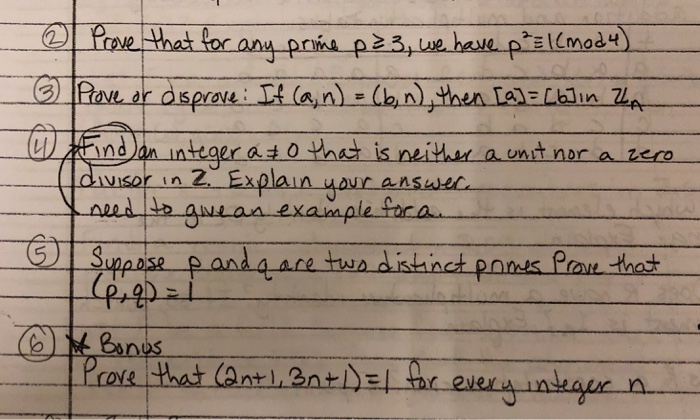 ② Prove that for any prime p ≥ 3, we have p² ≡ 1 (mod 4)
③ Prove or disprove: If (a,n) = (b,n), then [a] = [b] in ℤₙ
④ Find an integer a ≠ 0 that is neither a unit nor a zero
divisor in ℤ. Explain your answer.
need to give an example for a.
⑤ Suppose p and q are two distinct primes Prove that
(p,q) = 1
⑥ * Bonus
Prove that (2n+1, 3n+1) = 1 for every integer n